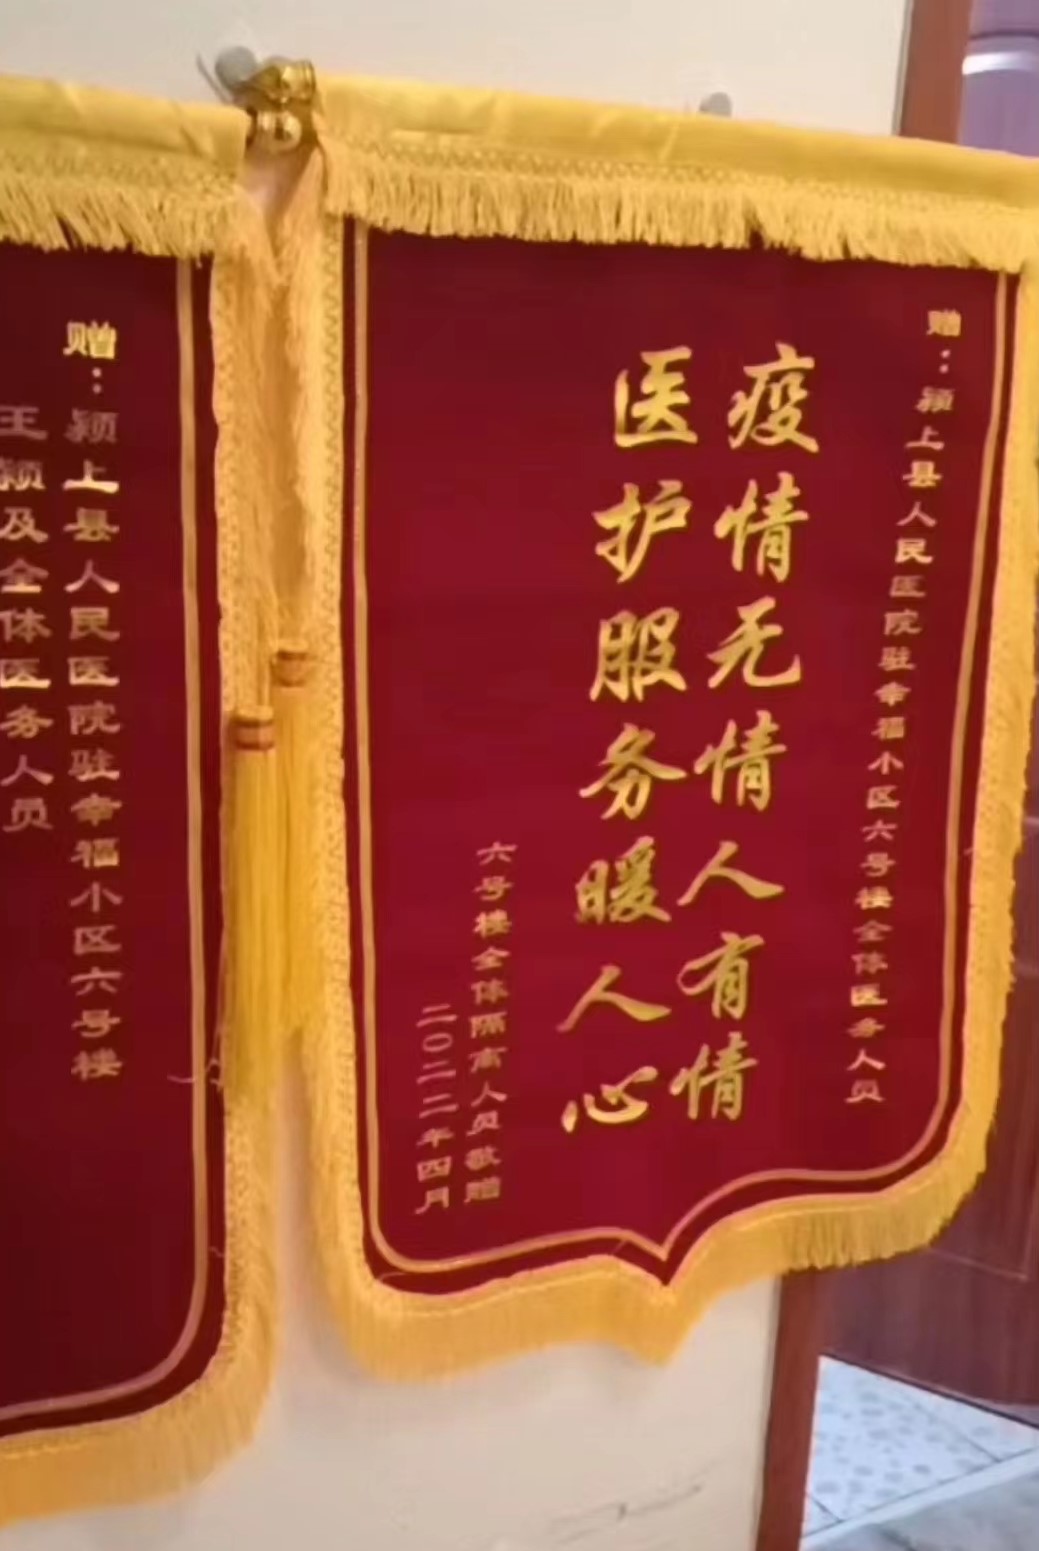 赠：颍上县人民医院驻幸福小区六号楼全体医务人员
疫情无情人有情
医护服务暖人心
六号楼全体隔离人员敬赠
二〇二二年四月
赠：颍上县人民医院驻幸福小区六号楼
王颍及全体医务人员